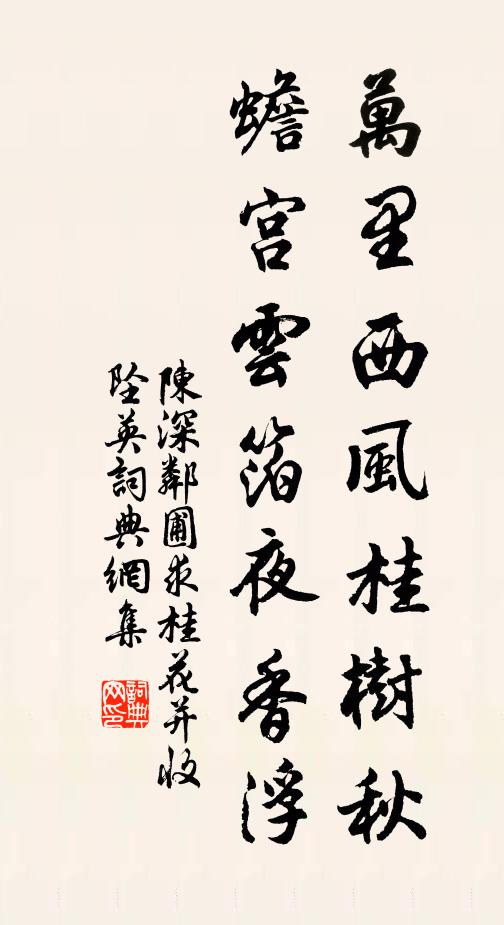 萬里西風桂樹秋
蟾宮雲箔夜香浮
陳深鄰圃求桂花並收
墜英詞典網集
詞典網印